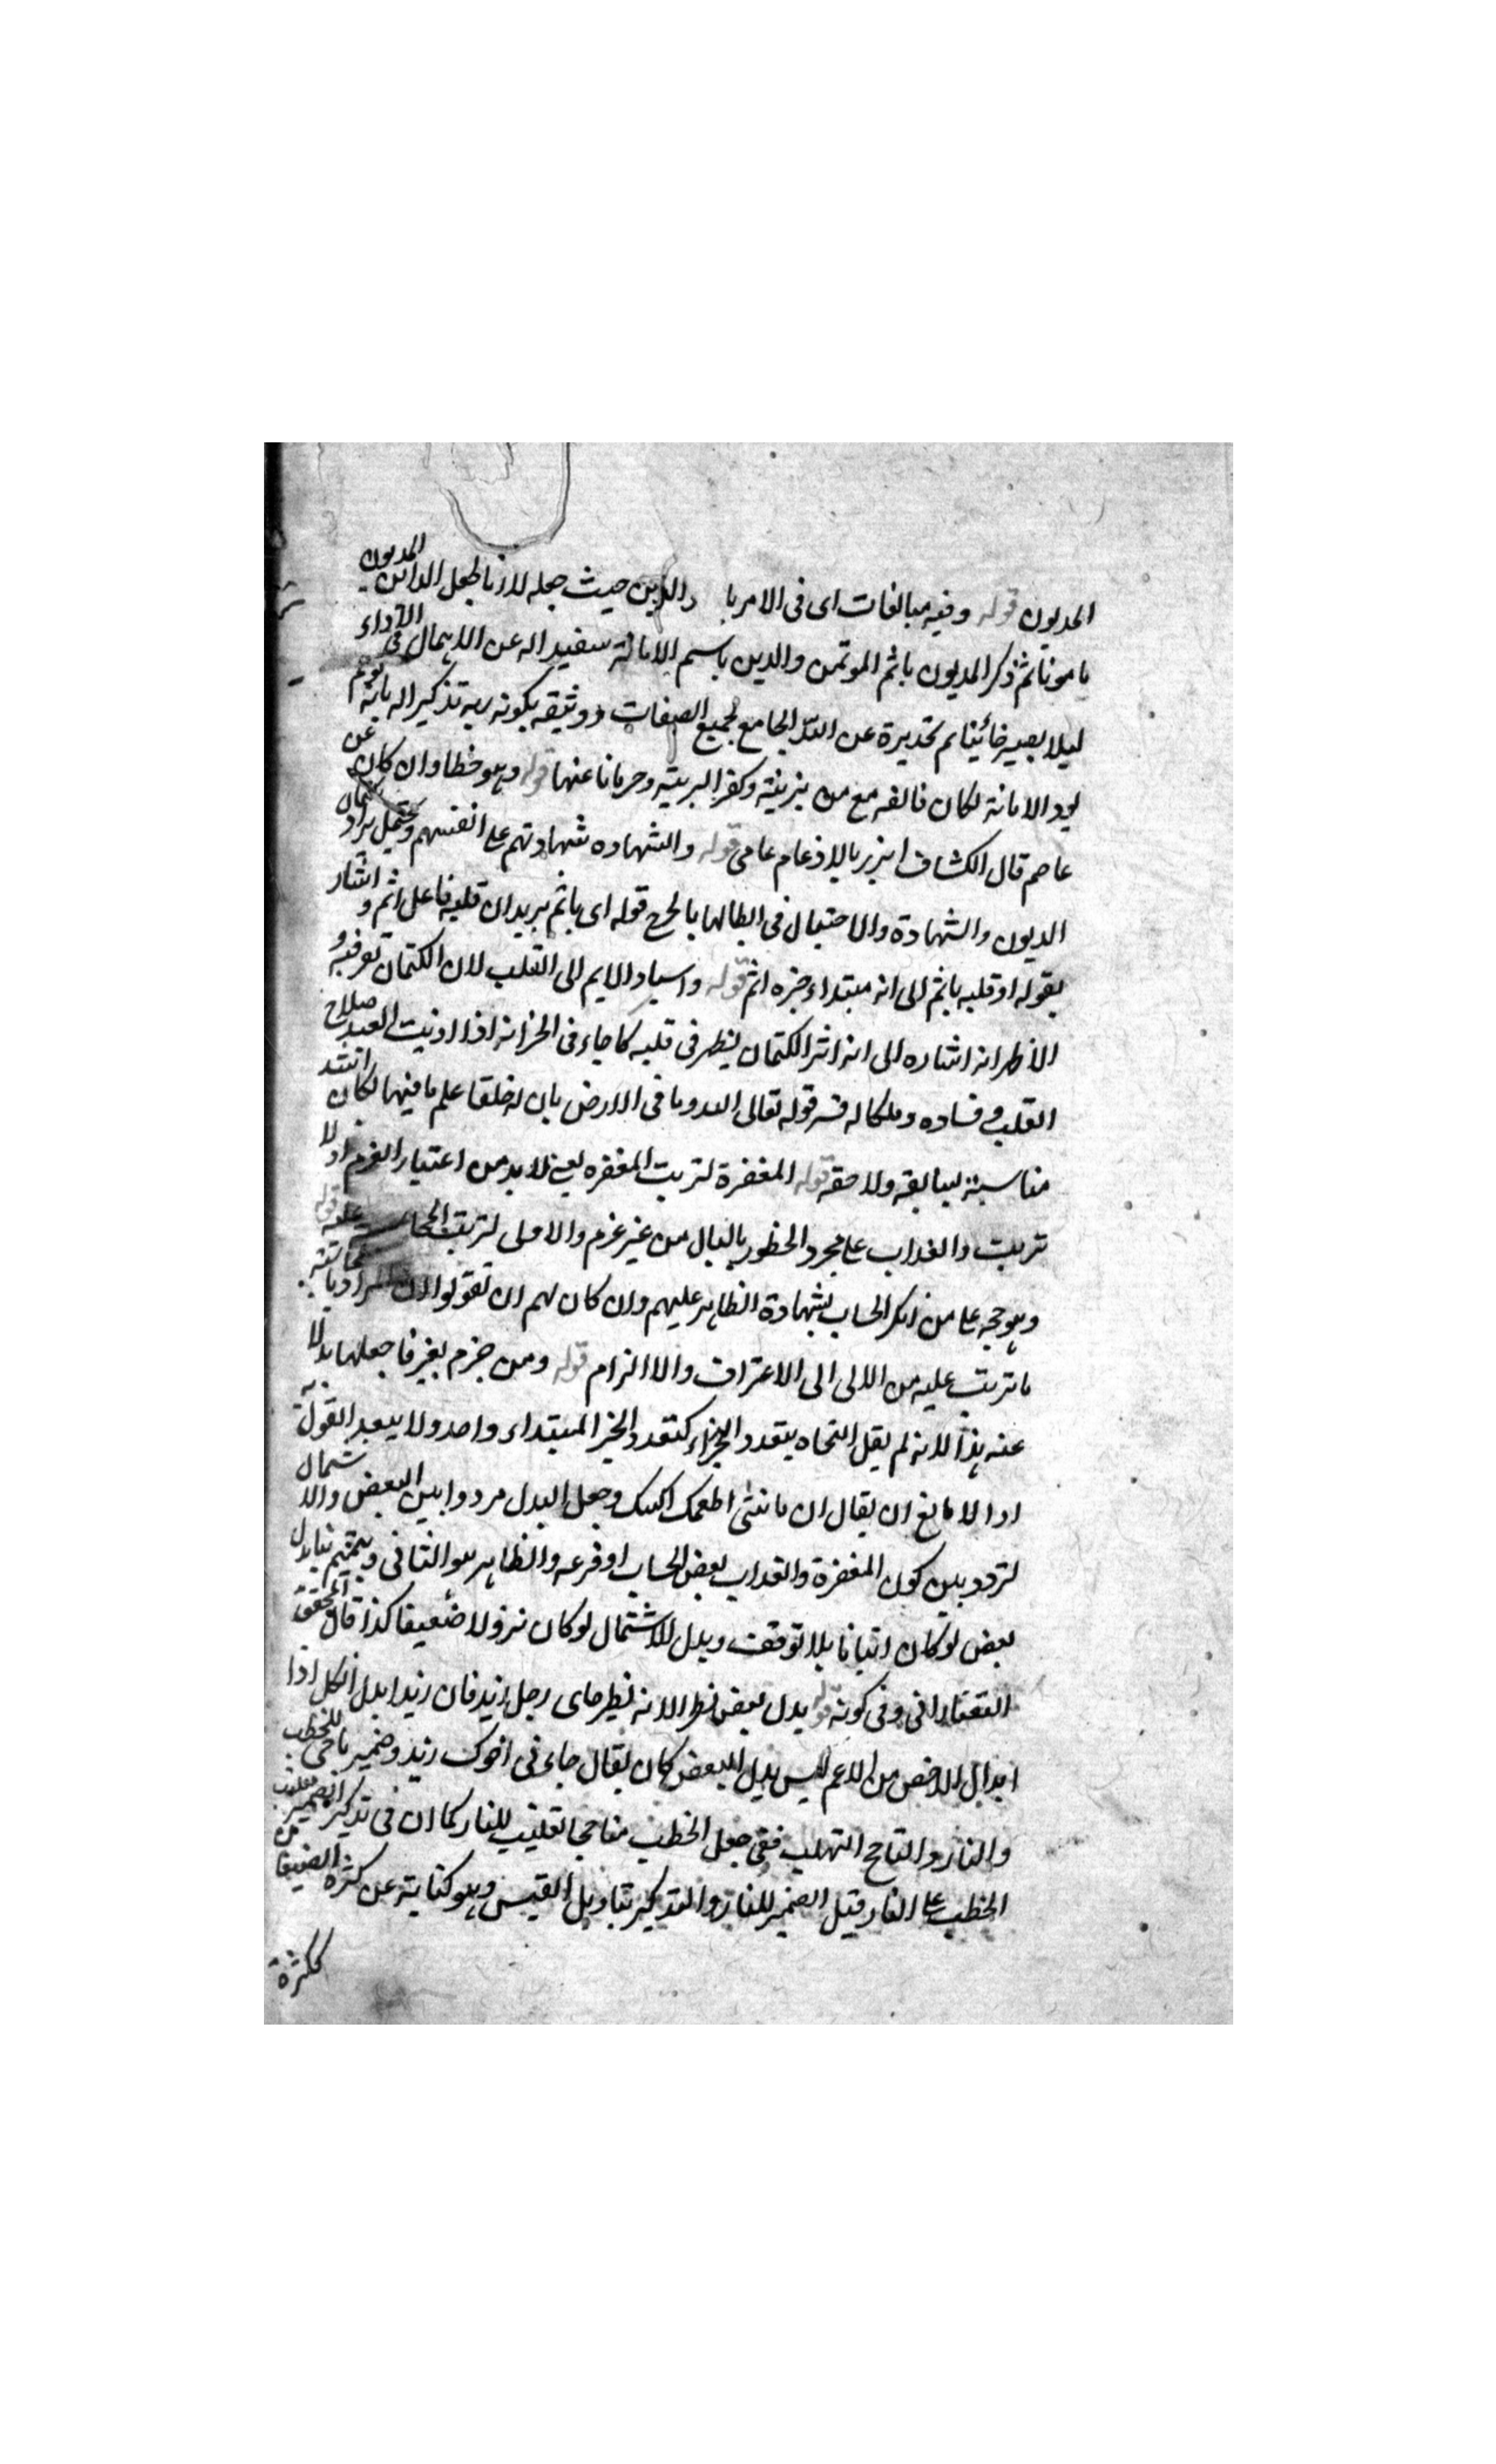 المديون قوله وفيه مبالغات اى فى الامر با والدين حيث جعله لازما لجعل الدائن المديون
مامونا ثم ذكر المديون باثم الموتمن والدين باسم الامانة سفيد اله عن الاهمال فى الآداء
ليلا يصير خائينا ثم تحذيرة عن الله الجامع لجميع الصفات ووثيقه بكونه ربه تذكير اله بانه
يود الامانة لكان فالفه مع من يزينة وكفر البريته وحرمانا عنها قوله وهو خطا وان كان عن
عاصم قال الكشاف ايزر بالادغام عامى قوله والشهاده شهادتهم على انفسهم ويحتمل يراد
الديون والشهادة والاحتيال فى ابطالها بالجرح قوله اى ياثم يريد ان قلبه فاعل اثم و اشار
بقوله او قلبه ياثم الى انه مبتداء خبره اثم قوله واسناد الايم الى القلب لان الكتمان
الأظهر انه اشاره الى انه اثر الكتمان يظهر فى قلبه كما جاء فى الخزانه اذا اذنبت العبد صلاح
القلب وفساده وملكا له فسر قوله تعالى لله وما فى الارض بان له خلقا علم ما فيها لكان اشد
مناسبة بسابقه ولاحقه قوله المغفرة لتربت المغفره يعنى لا بد من اعتبار العزم اولا
تربت والعذاب على مجرد الخطور بالبال من غير عزم والاولى لتربت عليه قوله
وهو حجه على من انكر الحساب بشهادة الظاهر عليهم وان كان لهم ان تقولوا ان المراد
ما تربت عليه من اللالى الى الاعتراف والا الزام قوله ومن جزم بغير فا جعلها بدلا
عنه هذا لانه لم يقل النحاه بتعدد الجزاء كتعدد الخبر المبتداء واحد ولا يبعد القول به
اذا لا مانع ان يقال ان ماتنى اطعمك اكسك وجعل البدل مردوا بين البعض والا شتمال
لتردد بين كون المغفرة والعذاب بعض الحساب او فرعه والظاهر هو الثانى
بعض لو كان اتيانا بلا توقف وبدل للاشتمال لو كان نزولا ضعيفا كذا قال المحقق
التفتازانى وفى كونه قوله بدل بعض نظر لانه نظير جاى رجل زيد فان زيدا بدل الكل اذا
ابدال الاخص من الاعم ليس بدل البعض كان يقال جاء فى اخوك زيد وضمير تاجى للحطب
والنار والتاجج التهلب ففى جعل الحطب متاججا تغليب للنار كما ان فى تذكير الضمير تغليب
الحطب على النار قيل الضمير للنار والتذكير بتاويل القبس وهو كناية عن كثرة الضيفان
ككثرة